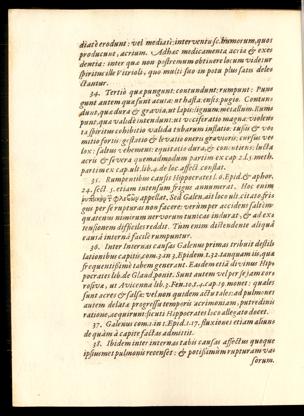 diatè erodunt: vel mediatè; interventu sc. humorum, quos
producunt, acrium. Adhæc medicamenta acria & exes
dentia: inter quæ non postremum obtinere locum videtur
spiritus ille Vitrioli, quo multi suo in potu plus satis dele
ctantur.
34. Tertiò quæ pungunt: contundunt: rumpunt: Pun
gunt autem quæ sunt acuta: ut hasta, ensis, pugio. Contun
dunt, quæ dura & gravia, ut lapis: lignum, metallum. Rum
punt, quæ validè intendunt: ut vociferatio magna: violen
ta spiritus cohibitio valida tubarum inflatio: tussis & vo
mitio fortis: gestatio & levatio oneris gravioris: cursus ve
lox: saltus vehemens: equitatio dura, & contentens: lucta
acris & severa quemadmodum partim ex cap 2. l. 5. meth.
partim ex cap. ult. lib. 4. de loc. affect. constat.
35. Rumpentibus causis Hippocrates l. 6. Epid. & aphor.
24. sect. 5. etiam intensum frigus annumerat. Hoc enim
appellat. Sed Galen. ait loco ult. citato fris
gus per se rupturas non facere: verùm per accidens saltim
quatenus nimirum nervorum tunicas indurat, & ad ex
tensionem difficiles reddit. Tum enim distendente aliquâ
causâ internâ facile rumpuntur.
36. Inter Internas causas Galenus primas tribuit destil
lationibus capitis, com. 3 in 3. Epidem. t. 32. tanquam iis, quæ
frequentissimè tabem generant. Easdem etiã divinus Hip
pocrates lib. de Gland. posuit. Sunt autem vel per se jam ero
rosivæ, ut Avicenna lib. 3. Fen. 10. t. 4. cap. 19. monet: quales
sunt acres & salsæ: vel non quidem actu tales: ad pulmones
autem delatæ progressu temporis acrimoniam, putredinis
ratione, acquirunt: sicuti Hippocrates loco allegato docet.
37. Galenus com. 1 in 1. Epid. t. 17. fluxiones etiam aliun
de quàm à capite factas admittit.
38. Ibidem inter internas tabis causas affectus quoque
ipsius met pulmonis recenset: & potissimùm rupturam va
sorum,